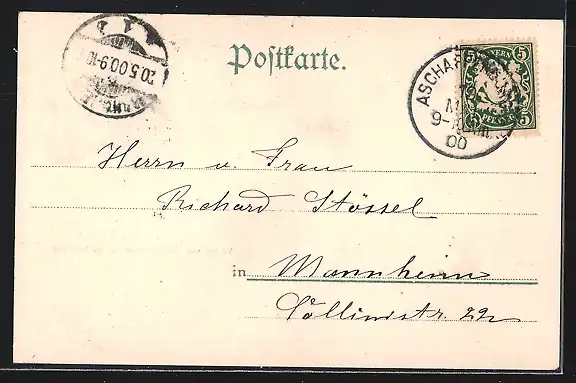 Postkarte.
20.5.00.9-10
ASCHAF
9-
00
BAYERN
5 5
PFENNIG
Herrn u. Frau
Richard Stössel
in Mannheim
Collinistr. 22